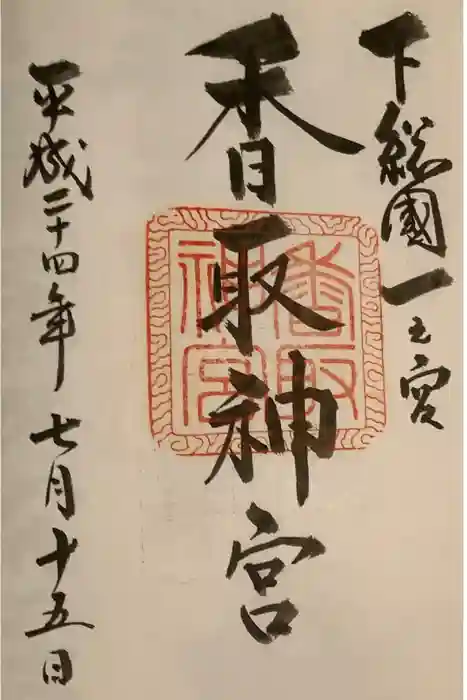 下総國一之宮
香取神宮
香取
神宮
平成二十四年七月十五日